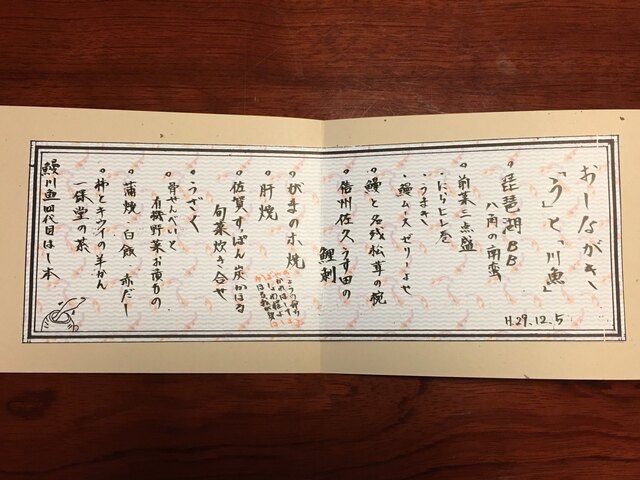 おしながき
「う」と「川魚」
H.29.12.5
・琵琶湖BB
八角の南蛮
・前菜三点盛
・にらヒレ巻
・うまき
・鰻ムースゼリーよせ
・鰻と名残松茸の椀
・信州佐久うす田の
鯉刺
・がまの木焼
・肝焼
・佐賀すっぽん炭かほる
旬菜炊き合せ
・うざく
・骨せんべいと
有機野菜お漬もの
・蒲焼 白飯 赤だし
・柿とキウイの羊かん
一保堂の茶
鰻川魚四代目はし本